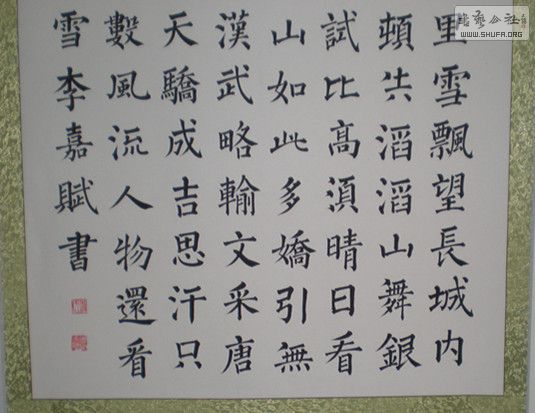 里雪飄望長城内
頓失滔滔山舞銀
試比高須晴日看
山如此多嬌引無
漢武略輸文采唐
天驕成吉思汗只
數風流人物還看
雪李嘉賦書
WWW.SHUFA.ORG